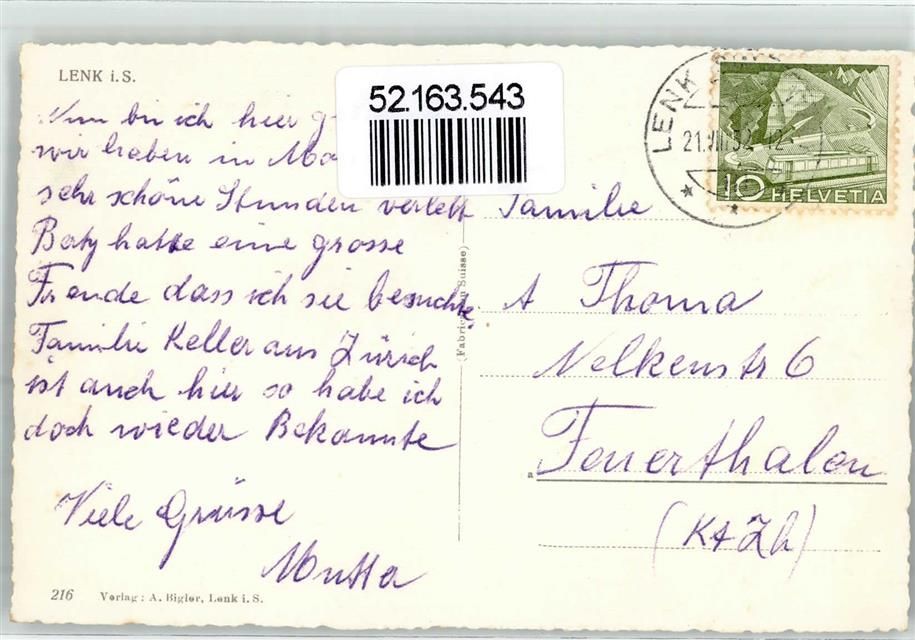 LENK i.S.
52.163.543
Nun bin ich hier
wir haben in
sehr schöne Stunden verlebt
Bety hatte eine grosse
Freude dass ich sie besuchte.
Familie Keller aus Zürich
ist auch hier so habe ich
doch wieder Bekannte
Viele Grüsse
Mutter
216 Verlag: A. Bigler, Lenk i. S.
LENK
21.VIII.52-12
10 HELVETIA
Familie
A Thoma
Nelkenstr 6
Feuerthalen
(Kt Zh)